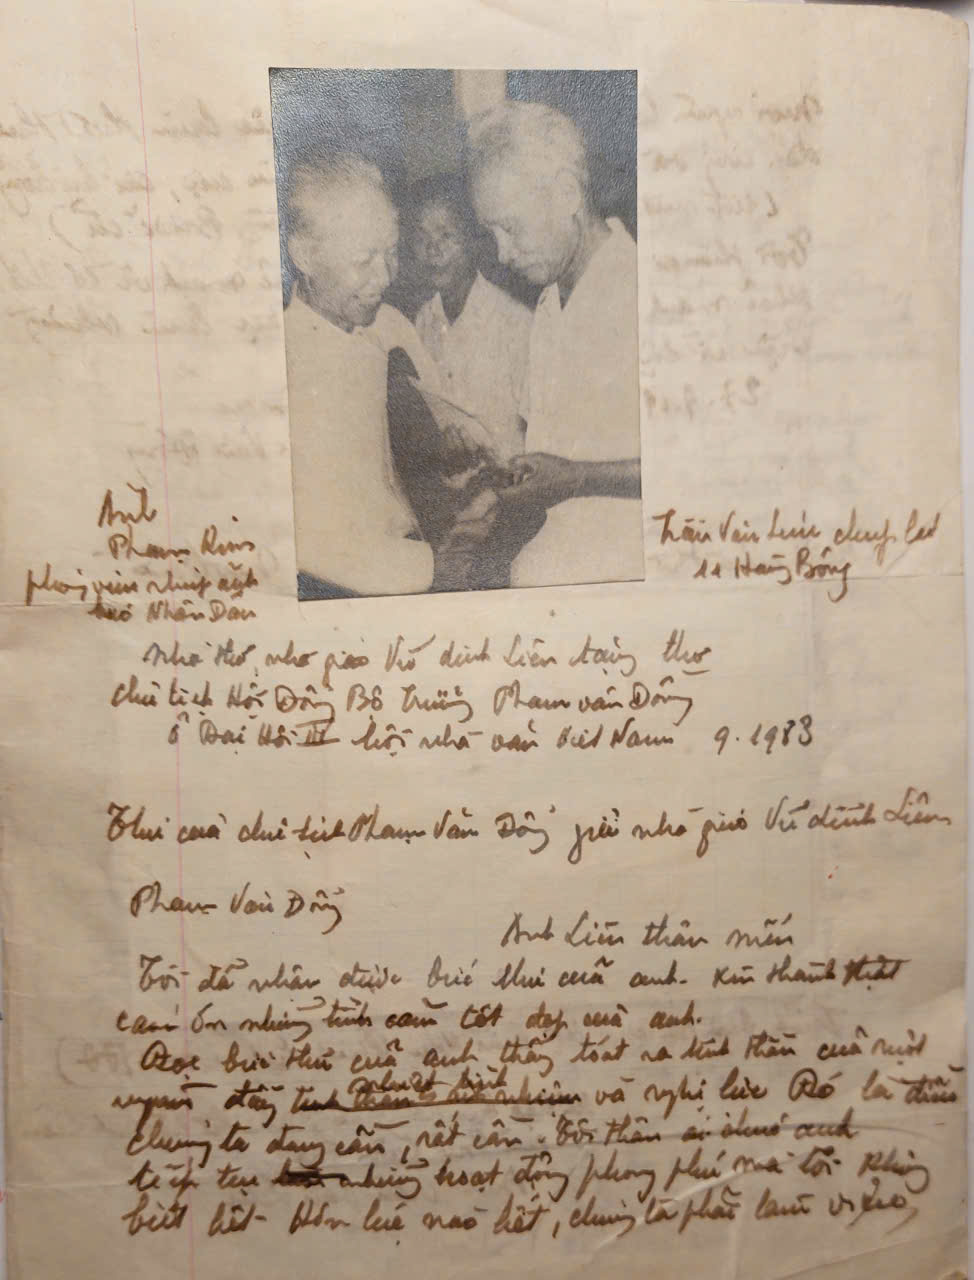 Ảnh
Phạm Kim
phóng viên nhiếp ảnh
báo Nhân Dân
Trần Văn Lưu chụp lại
11 Hàng Bông
Nhà thơ, nhà giáo Vũ đình Liên tặng thơ
chủ tịch Hội Đồng Bộ Trưởng Phạm văn Đồng
ở Đại Hội III hội nhà văn Việt Nam 9.1983
Thư của chủ tịch Phạm Văn Đồng gửi nhà giáo Vũ đình Liên
Phạm Văn Đồng
Anh Liên thân mến
Tôi đã nhận được bức thư của anh. Xin thành thật
cảm ơn những tình cảm tốt đẹp của anh.
Đọc bức thư của anh thấy toát ra tinh thần của một
người đầy nhiệt tình và nghị lực Đó là điều
chúng ta đang cần, rất cần. Tôi thân ái chúc anh
tiếp tục những hoạt động phong phú mà tôi không
biết hết. Hơn lúc nào hết, chúng ta phải làm việc,